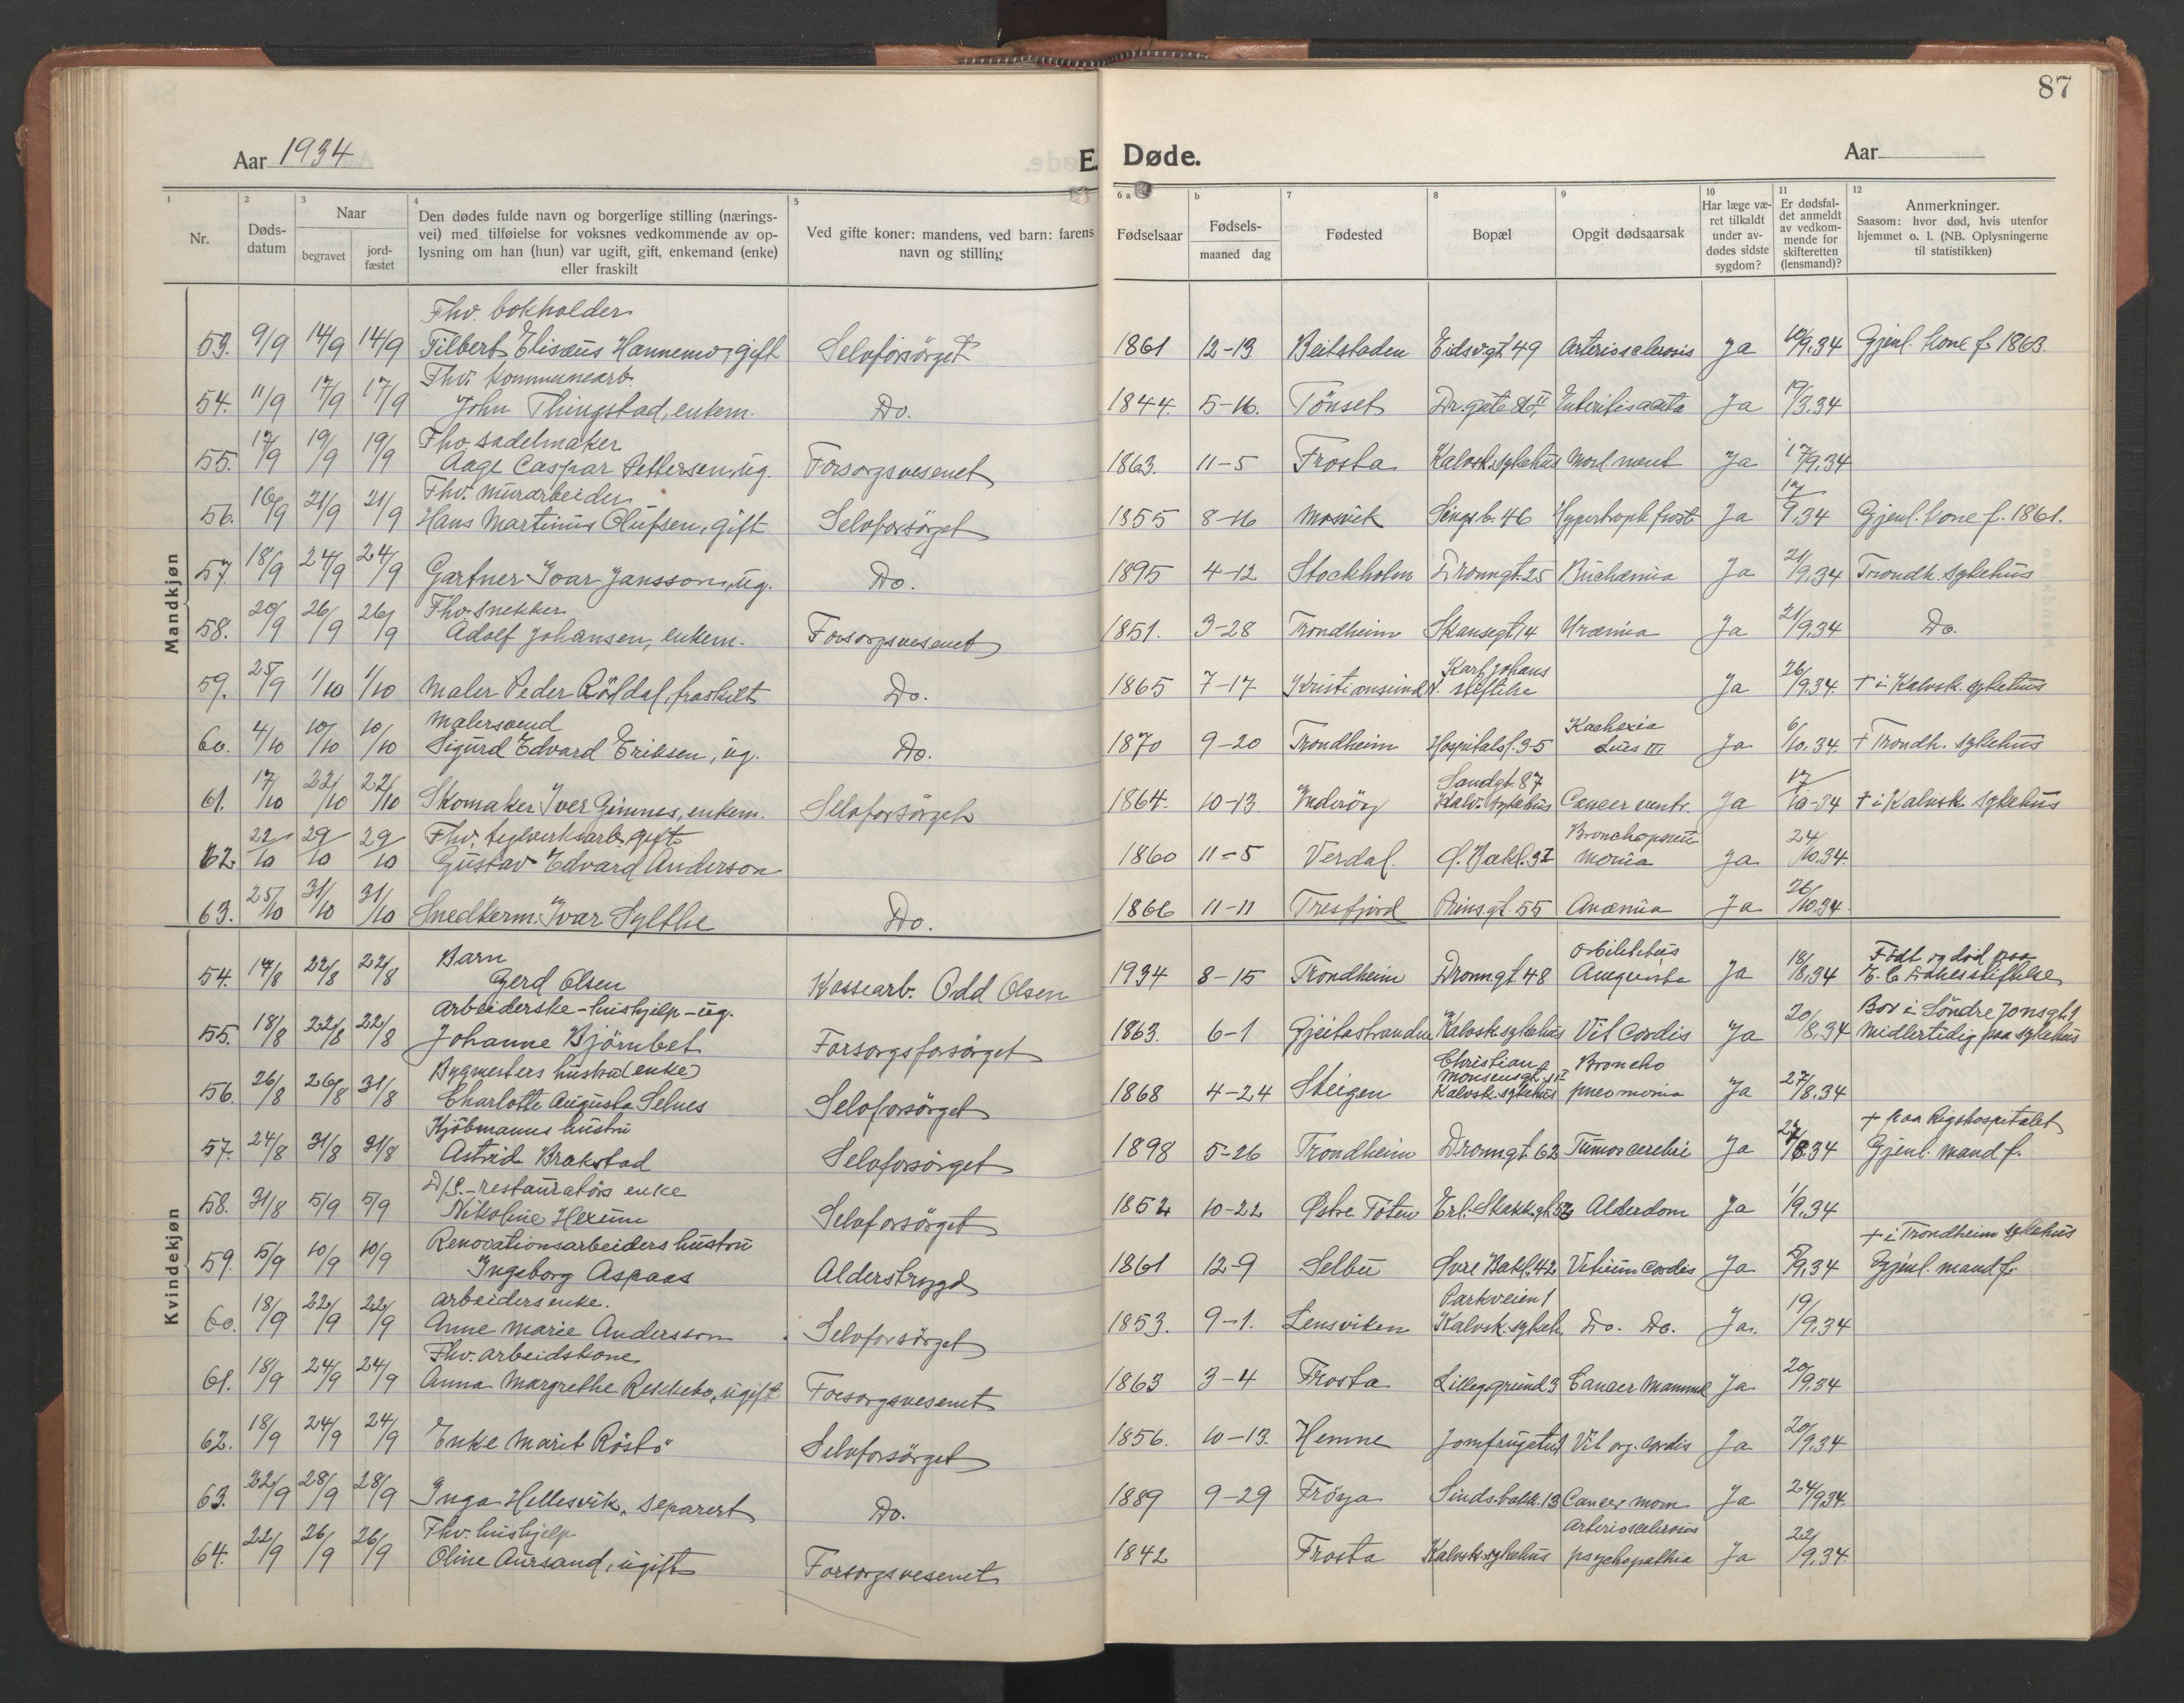 87
Aar 1934
E. Døde.
Aar
1 2 3 4 5 6 a b 7 8 9 10 11 12
Nr.
Døds-
datum
Naar
begravet
jord-
fæstet
Den dødes fulde navn og borgerlige stilling (nærings-
vei) med tilføielse for voksnes vedkommende av op-
lysning om han (hun) var ugift, gift, enkemand (enke)
eller fraskilt
Ved gifte koner: mandens, ved barn: farens
navn og stilling
Fødselsaar
Fødsels-
maaned dag
Fødested
Bopæl
Opgit dødsaarsak
Har læge væ-
ret tilkaldt
under av-
dødes sidste
sygdom?
Er dødsfal-
det anmeldt
av vedkom-
mende for
skifteretten
(lensmand)?
Anmerkninger.
Saasom: hvor død, hvis utenfor
hjemmet o. l. (NB. Oplysningerne
til statistikken)
Mandkjøn
Fhv. bokholder
53. 9/9 14/9 14/9 Tilbert Elisæus Hannemo, gift Selvforsörget 1861 12-13 Beitstaden Eidsvgt 49 Arteriosclerosis Ja 10/9.34 Gjenl. kone f. 1863.
Fhv. kommunearb.
54. 11/9 17/9 17/9 John Thingstad, enkem. Do. 1844. 5-16. Tönset Dr. gate Enteritis acuta Ja 34
Fhv. sadelmaker
55. 17/9 19/9 19/9 Aage Caspar Pettersen, ug. Forsorgsvesenet 1863. 11-5 Frosta Kalvsk. sykehus Morb. ment Ja 17/9.34
Fhv. murarbeider
56. 16/9 21/9 21/9 Hans Martinus Olufsen, gift Selvforsörget 1855 8-16 Mosvik Singsb. 46 Hypertroph prost. Ja 17/9.34 Gjenl. kone f. 1861.
57. 18/9 24/9 24/9 Gartner Ivar Jansson, ug. Do. 1895 4-12 Stockholm Dronngt. 25 Ja 21/9.34 Trondh. sykehus
Fhv. snekker
58. 20/9 26/9 26/9 Adolf Johansen, enkem. Forsorgsvesenet 1851. 3-28 Trondheim Skansegt 14 Uræmia Ja 21/9.34 Do.
Karl Johans
59. 25/9 1/10 1/10 Maler Peder Röldal, fraskilt Do. 1865 7-17 Kristiansund N. stiftelse Ja 26/9.34 + i Kalvsk. sykehus
Malersvend Kachexia
60. 4/10 10/10 10/10 Sigurd Edvard Eriksen, ug. Do. 1870 9-20 Trondheim Hospitalsl. 35 Lues III Ja 6/10.34. + Trondh. sykehus
Sandgt. 87
61. 17/10 22/10 22/10 Skomaker Iver Gimnes, enkem. Selvforsörget 1864. 10-13. Inderöy Kalv. sykehus Cancer ventr. Ja 17/10-34 + i Kalvsk. sykehus
Fhv. teglverksarb. gift Bronchopneu
62. 22/10 29/10 29/10 Gustav Edvard Anderson 1860 11-5 Verdal. monia Ja 24/10.34.
63. 25/10 31/10 31/10 Snedkerm. Ivar Sylthe Do. 1866 11-11 Tresfjord Prinsgt. 55 Anæmia Ja 26/10.34.
Kvindekjøn
Barn Født og död paa
54. 17/8 22/8 22/8 Gerd Olsen Kassearb. Odd Olsen 1934 8-15 Trondheim Dronngt 48 Ja 18/8.34 E. C. Dahls stiftelse
Arbeiderske - hushjelp - ug. Bor i Söndre Jonsgt. 1
55. 18/8 22/8 22/8 Johanne Björnbet Forsorgsforsörget 1863. 6-1 Gjeitastranden Kalvsk. sykehus Vit cordis Ja 20/8.34 midlertidig paa sykehus
Bygmesters hustru (enke) Christian Monsensgt. Broncho
56. 26/8 26/8 31/8 Charlotte Augusta Selnes Selvforsörget 1868 4-24 Steigen Kalvsk. sykehus pneomonia Ja 27/8.34
Kjöbmanns hustru + paa Rigshospitalet
57. 24/8 31/8 31/8 Astrid Brakstad Selvforsörget 1898 5-26 Trondheim Dronngt. 62 Tumor cerebri Ja 27/8.34 Gjenl. mand f.
D/S.-restauratörs enke
58. 31/8 5/9 5/9 Nikoline Hexum Selvforsörget 1852 10-22 Østre Toten Erl. Skakkgt. Alderdom Ja 1/9.34
Renovationsarbeiders hustru + i Trondheim sykehus
59. 5/9 10/9 10/9 Ingeborg Aspaas Alderstrygd 1861 12-9 Selbu Övre Bakl. 42 Vitium cordis Ja 5/9.34 Gjenl. mand f.
Arbeiders enke. Parkveien 1
60. 18/9 22/9 22/9 Anne Marie Andersson Selvforsörget 1853. 9-1. Lensviken Kalvsk. sykeh. Do. Do. Ja. 19/9.34
Fhv. arbeidskone
61. 18/9 24/9 24/9 Anna Margrethe Rekkebo, ugift Forsorgsvesenet 1863 3-4 Frosta Lilleggrund 3 Cancer Mamme Ja 20/9.34
62. 18/9 24/9 24/9 Enke Marit Röstö Selvforsörget 1856. 10-13. Hemne Jomfrugate 1 Vit org. cordis Ja 20/9.34
63. 22/9 28/9 28/9 Inga Hellesvik, separert Do. 1889 9-29 Fröya Sinds. bakk. 13 Cancer mam Ja 24/9.34.
Fhv. hushjelp Arteriosclerosis
64. 22/9 26/9 26/9 Oline Aursand, ugift Forsorgsvesenet 1842 Frosta Kalvsk. sykehus psychopathia Ja 22/9.34.